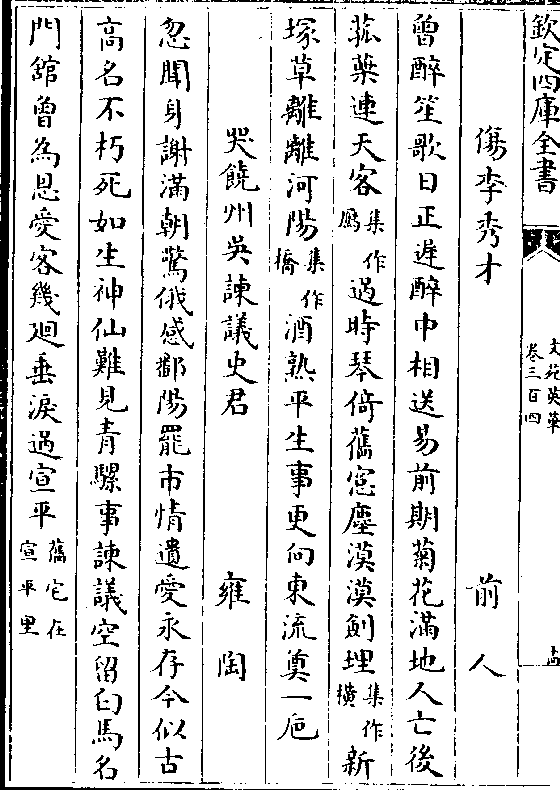 欽定四庫全書
文苑英華
卷三百四
傷李秀才　前人
曾醉笙歌日正遲醉中相送易前期菊花滿地人亡後
菰葉連天客集作鴈過時琴倚舊窓塵漠漠劍埋集作橫新
塚草離離河陽集作橋酒熟平生事更向東流奠一巵
哭饒州吳諫議史君　雍陶
忽聞身謝滿朝驚俄感鄱陽罷市情遺愛永存今似古
高名不朽死如生神仙難見青騾事諫議空留白馬名
門舘曾為恩愛客幾廻垂淚過宣平舊宅在宣平里